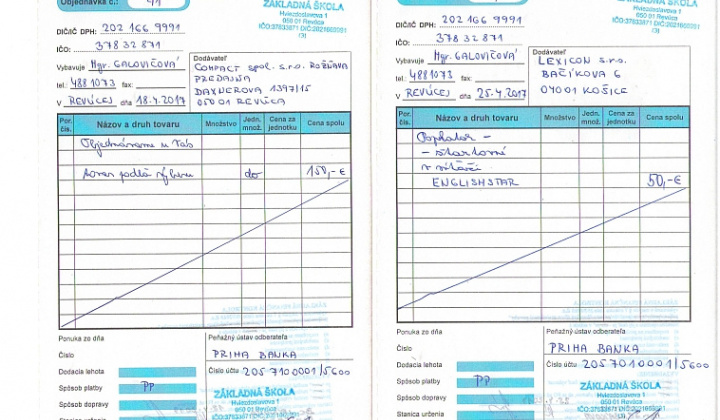 Objednávka č.:
ZÁKLADNÁ ŠKOLA
Hviezdoslavova 1
050 01 Revúca
DIČ/IČ DPH: 202 166 9991
IČO: 37832871
Vybavuje Mgr. GALOVIČOVÁ
tel.: 4881073 fax:
V REVÚCEJ dňa 18.4.2017
Dodávateľ
COMPACT spol. s.r.o. ROŽŇAVA
PREDAJŇA
DAXNEROVA 1397/15
050 01 REVÚCA
Por. čís.
Názov a druh tovaru
Množstvo
Jedn. množ.
Cena za jednotku
Cena spolu
Objednávame u Vás
tovar podľa výberu do 150,-€
Ponuka zo dňa
Číslo
Dodacia lehota
Spôsob platby PP
Spôsob dopravy
Stanica určenia
Peňažný ústav odberateľa
PRIMA BANKA
Číslo účtu 2057100001/5600
ZÁKLADNÁ ŠKOLA
Hviezdoslavova 1
050 01 Revúca
ZÁKLADNÁ ŠKOLA
Hviezdoslavova 1
050 01 Revúca
DIČ/IČ DPH: 202 166 9991
IČO: 37832871
Vybavuje Mgr. GALOVIČOVÁ
tel.: 4881073 fax:
V REVÚCEJ dňa 25.4.2017
Dodávateľ
LEXICON s.r.o.
BAČÍKOVA 6
04001 KOŠICE
Por. čís.
Názov a druh tovaru
Množstvo
Jedn. množ.
Cena za jednotku
Cena spolu
Poplatok -
- štartovné
v súťaži
ENGLISHSTAR 50,-€
Ponuka zo dňa
Číslo
Dodacia lehota
Spôsob platby PP
Spôsob dopravy
Stanica určenia
Peňažný ústav odberateľa
PRIMA BANKA
Číslo účtu 2057010001/5600
ZÁKLADNÁ ŠKOLA
Hviezdoslavova 1
050 01 Revúca